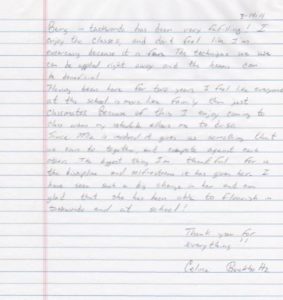 3-14-11
Being in taekwondo has been very fulfilling. I
enjoy the classes, and don't feel like I'm
exercising because it is fun. The techniques we use
can be applied right away and the lessons can
be beneficial.
Having been here for two years I feel like everyone
at the school is more like family then just
classmates. Because of this I enjoy coming to
class when my schedule allows me to
Since Mia is involved it gives us something that
we can do together, and compete against each
other. The biggest thing I'm thankful for is
the discipline and self-esteem it has given her. I
have seen such a big change in her and am
glad that she has been able to flourish in
taekwondo and at school!
Thank you for
everything
Celina